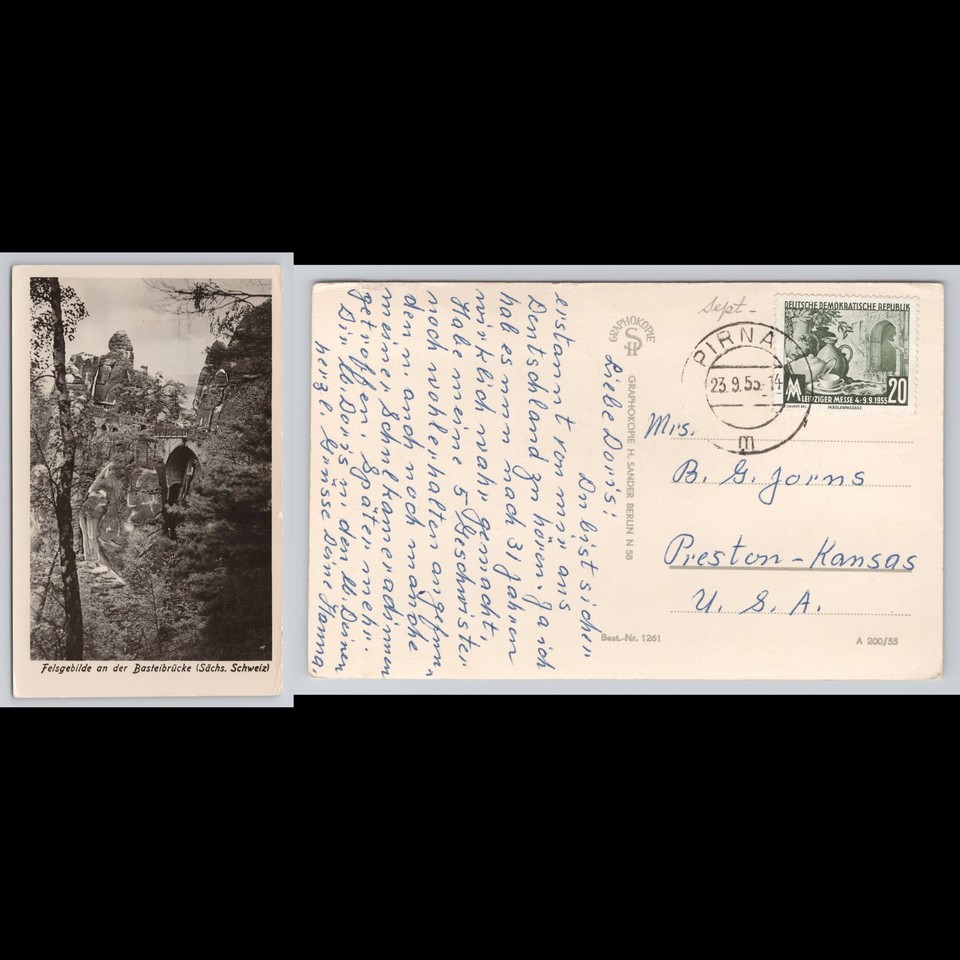 Felsgebilde an der Basteibrücke (Sächs. Schweiz)
Sept -
DEUTSCHE DEMOKRATISCHE REPUBLIK
LEIPZIGER MESSE 4.-9.9.1955
20
MÄDLERPASSAGE
PIRNA
23.9.55-14
m
Mrs.
B. G. Jorns
Preston-Kansas
U. S. A.
GRAPHOKOPIE
GRAPHOKOPIE H. SANDER BERLIN N 58
Best.-Nr. 1261
A 200/55
Liebe Doris!
Du bist sicher
erstaunt von mir aus
Deutschland zu hören, ja ich
hab es nun nach 31 Jahren
wirklich wahr gemacht,
Habe meine 5 Geschwister
noch wohlerhalten angetroffen
dann auch noch manche
meiner Schulkameradinnen
getroffen. Später mehr.
Dir, lb. Doris u. den lb. Deinen
herzl. Grüsse Deine Hanna